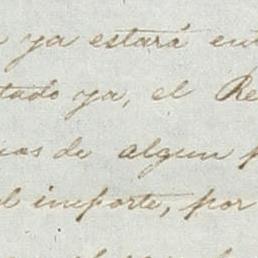 ya estará
tado ya, el Re
as de algun p
el importe, por